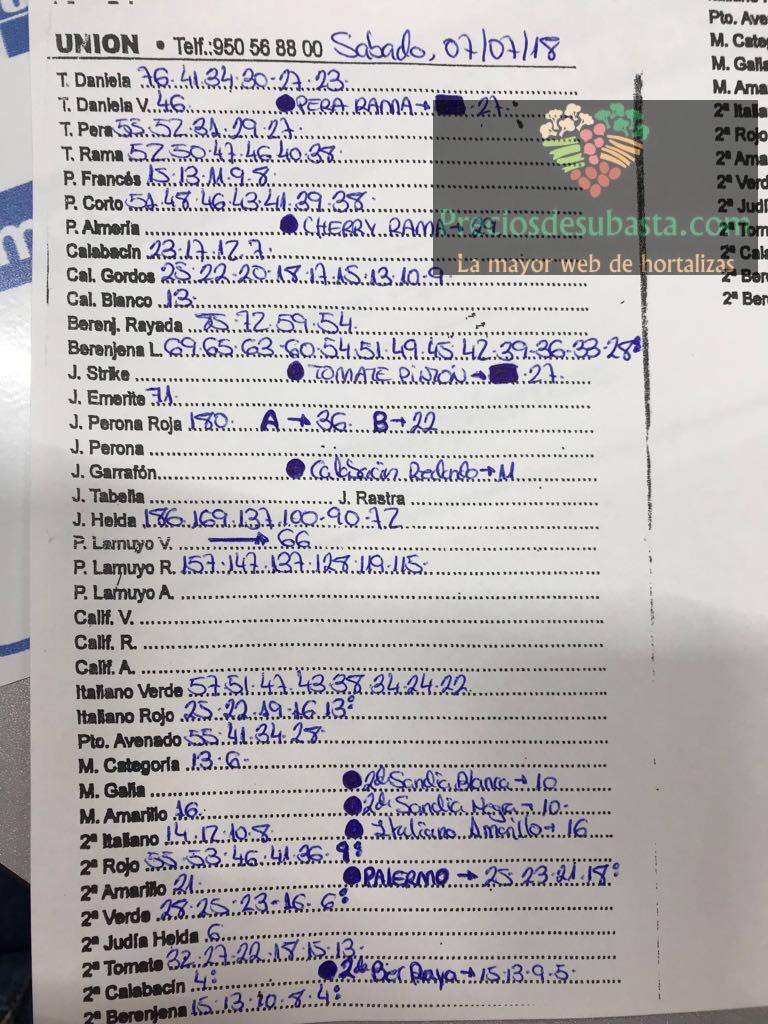 UNION • Telf.:950 56 88 00 Sabado, 07/07/18
T. Daniela 76.41.34.30-27.23.
T. Daniela V. 46. PERA RAMA → 27.
T. Pera 55.52.31.29.27.
T. Rama 52.50.47.46.40.38.
P. Francés 15.13.11.9.8.
P. Corto 51.48.46.43.41.39.38.
P. Almeria CHERRY RAMA → 29.
Preciosdesubasta.com
La mayor web de hortalizas
Calabacín 23.17.12.7.
Cal. Gordos 25.22.20.18.17.15.13.10.9.
Cal. Blanco 13.
Berenj. Rayada 75.72.59.54.
Berenjena L. 69.65.63.60.54.51.49.45.42.39.36.33.28
J. Strike TOMATE PINTON → 27.
J. Emerite 71.
J. Perona Roja 180. A → 36. B → 22
J. Perona
J. Garrafón Calabacin Redondo → M
J. Tabella J. Rastra
J. Helda 186.169.137.100.90.72
P. Lamuyo V. → 66
P. Lamuyo R. 157.147.137.128.119.115.
P. Lamuyo A.
Calif. V.
Calif. R.
Calif. A.
Italiano Verde 57.51.47.43.38.34.24.22
Italiano Rojo 25.22.19.16.13
Pto. Avenado 55.41.34.28.
M. Categoria 13.6.
M. Galia 2ª Sandia Blanca → 10
M. Amarillo 16. 2ª Sandia Negra → 10.
2ª Italiano 14.12.10.8 Italiano Amarillo → 16
2ª Rojo 55.53.46.41.36.9
2ª Amarillo 21. PALERMO → 25.23.21.18
2ª Verde 28.25.23.16.6
2ª Judía Helda 6.
2ª Tomate 32.27.22.18.15.13.
2ª Calabacín 4 2ª Ber Raya → 15.13.9.5.
2ª Berenjena 15.13.10.8.4
Pto. Ave
M. Cate
M. Galia
M. Ama
2ª Italia
2ª Rojo
2ª Ama
2ª Verd
2ª Judí
2ª Tom
2ª Cala
2ª Ber
2ª Ber